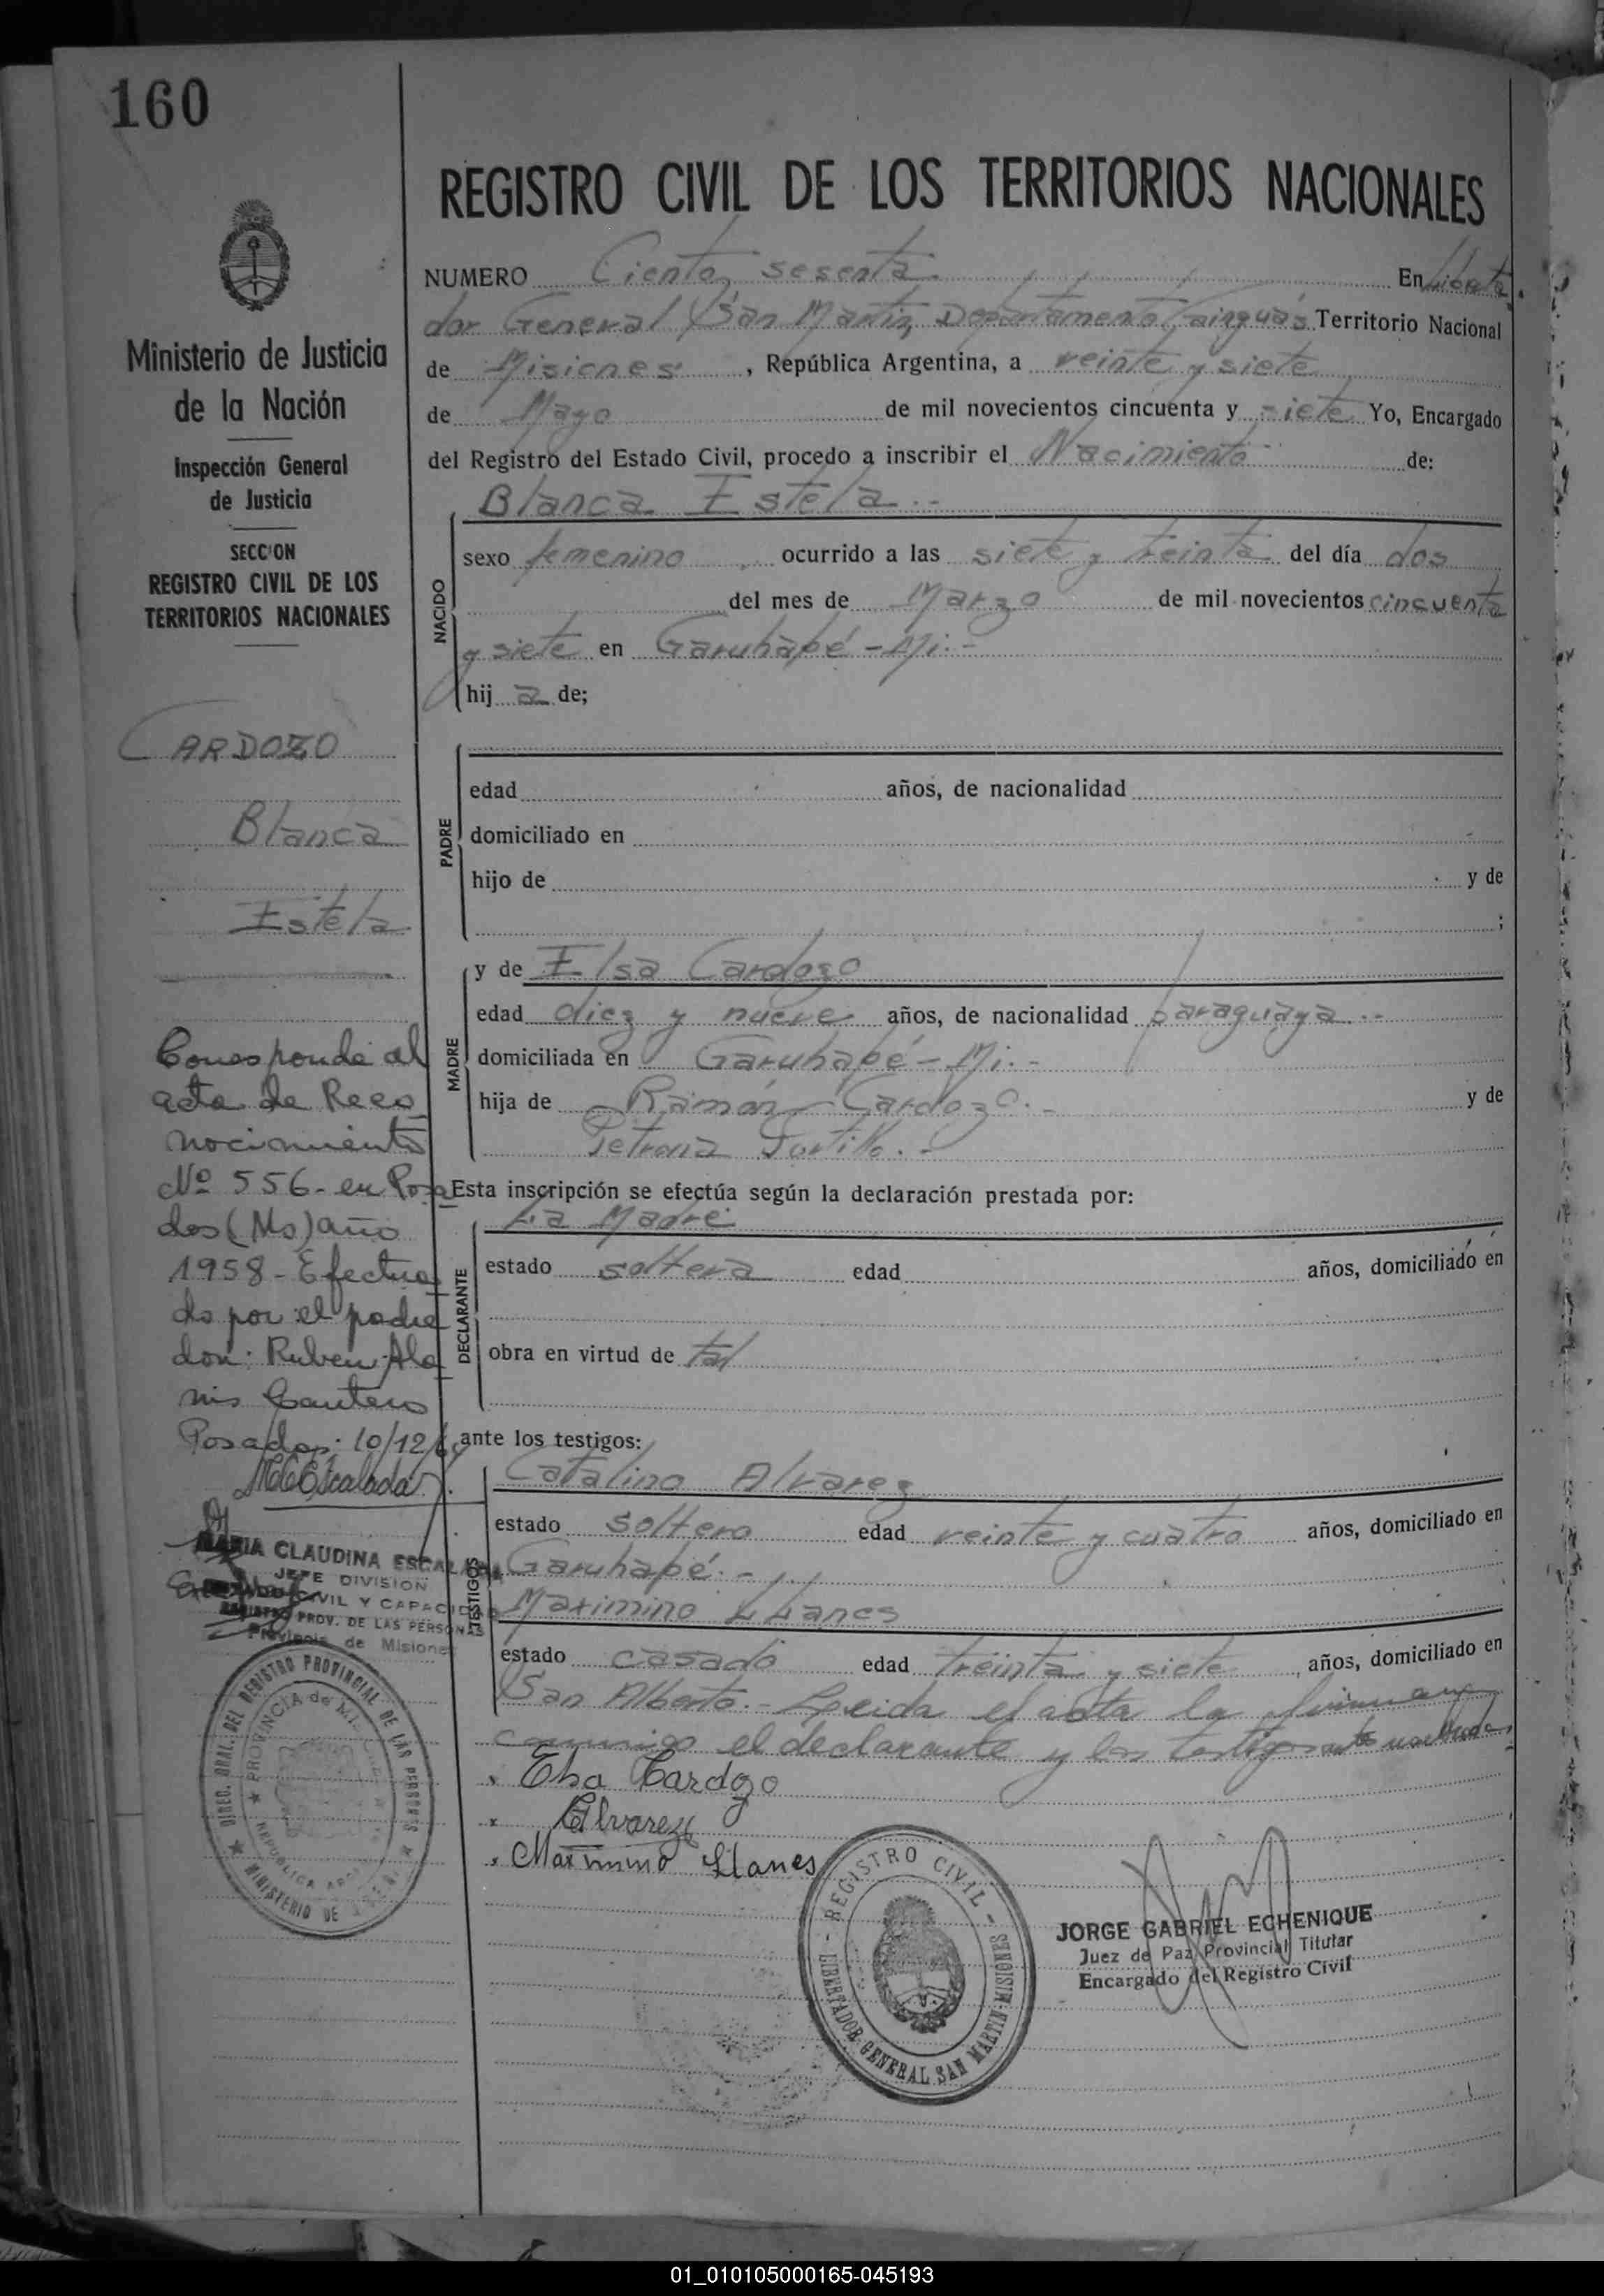 160
REGISTRO CIVIL DE LOS TERRITORIOS NACIONALES
NUMERO Ciento sesenta En Liberta
dor General San Martin, Departamento Cainguás Territorio Nacional
de Misiones , República Argentina, a veinte y siete
de Mayo de mil novecientos cincuenta y siete Yo, Encargado
del Registro del Estado Civil, procedo a inscribir el Nacimiento de:
Blanca Estela.-
NACIDO
sexo femenino ocurrido a las siete y treinta del día dos
del mes de Marzo de mil novecientos cincuenta
y siete en Garuhapé - Mi.-
hij a de;
PADRE
edad años, de nacionalidad
domiciliado en
hijo de y de
;
MADRE
y de Elsa Cardozo
edad diez y nueve años, de nacionalidad paraguaya.-
domiciliada en Garuhapé - Mi.-
hija de Ramón Cardozo.- y de
Petrona Portillo.-
Esta inscripción se efectúa según la declaración prestada por:
La Madre
DECLARANTE
estado soltera edad años, domiciliado en
obra en virtud de tal
ante los testigos:
TESTIGOS
Catalino Alvarez
estado soltero edad veinte y cuatro años, domiciliado en
Garuhapé.-
Maximino Llanes
estado casado edad treinta y siete, años, domiciliado en
San Alberto.- Leida el acta la firman
conmigo el declarante y los testigos
Elsa Cardozo
Alvarez
Maximino Llanes
REGISTRO CIVIL
LIBERTADOR GENERAL SAN MARTIN-MISIONES
JORGE GABRIEL ECHENIQUE
Juez de Paz Provincial Titular
Encargado del Registro Civil
Ministerio de Justicia
de la Nación
Inspección General
de Justicia
SECCION
REGISTRO CIVIL DE LOS
TERRITORIOS NACIONALES
CARDOZO
Blanca
Estela
Corresponde al
acta de Reco
nocimiento
Nº 556- en Posa
das (Ms) año
1958- Efectua
do por el padre
don: Ruben Ala
nis Cantero
Posadas: 10/12/
MCEscalada
MARIA CLAUDINA ESCALADA
JEFE DIVISION
ESTADO CIVIL Y CAPACIDAD
REGISTRO PROV. DE LAS PERSONAS
Provincia de Misiones
DIREC. GRAL. DEL REGISTRO PROVINCIAL DE LAS PERSONAS
PROVINCIA de MISIONES
REPUBLICA ARGENTINA
MINISTERIO DE
01_010105000165-045193